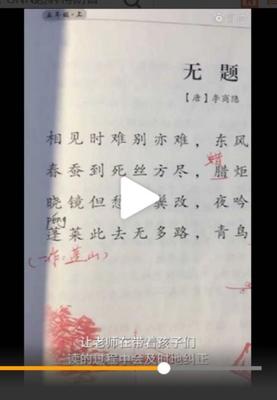 五年级·上
无题
【唐】李商隐
相见时难别亦难，东风
蜡
春蚕到死丝方尽，腊炬
晓镜但愁 鬓改，夜吟
péng
蓬莱此去无多路，青鸟
(一作:蓬山)
让老师在带着孩子们
读的过程中会及时地纠正